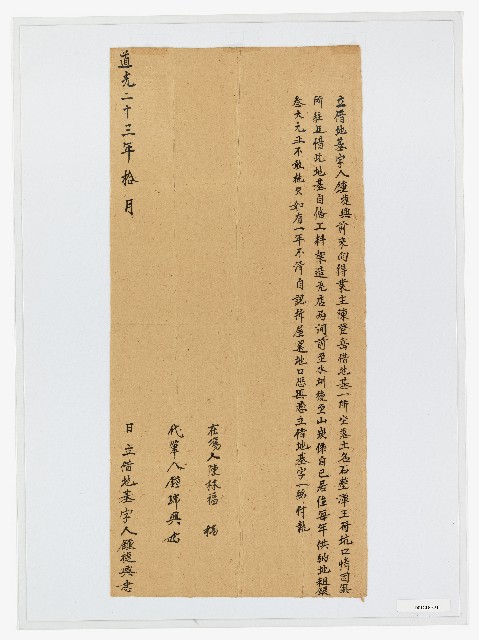 立借地基字人鍾復興前來向得業主陳登善借地基一所坐落土名石壁潭王爺坑口情因無
所莊居借此地基自俻工料架造瓦店兩間前至水圳後至山崁係自己居住每年供納地租銀
叁大元正不敢抗欠如有一年不清自認拆屋還地口恐無憑立借地基字一紙付執
在塲人陳林福
代筆人鍾瑞興
道光二十三年拾月 日立借地基字人鍾復興